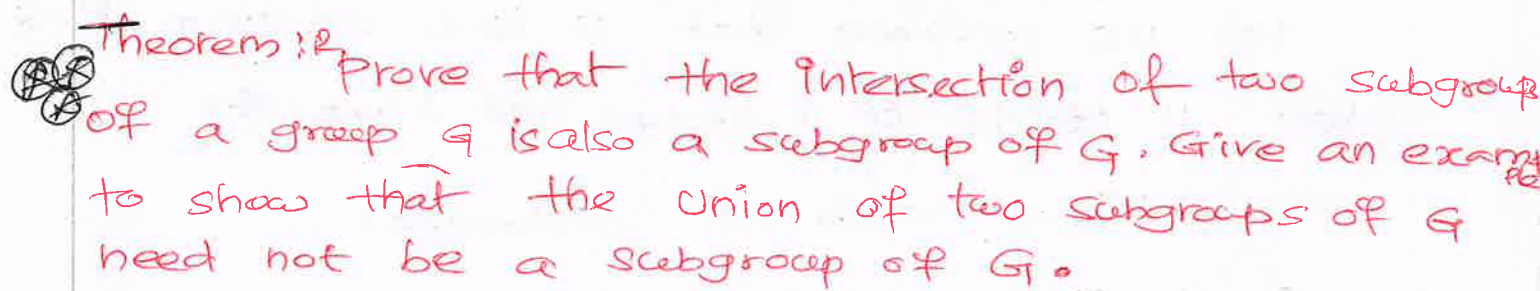 Theorem : 2
Prove that the intersection of two subgroups
of a group G is also a subgroup of G. Give an example
to show that the union of two subgroups of G
need not be a subgroup of G.